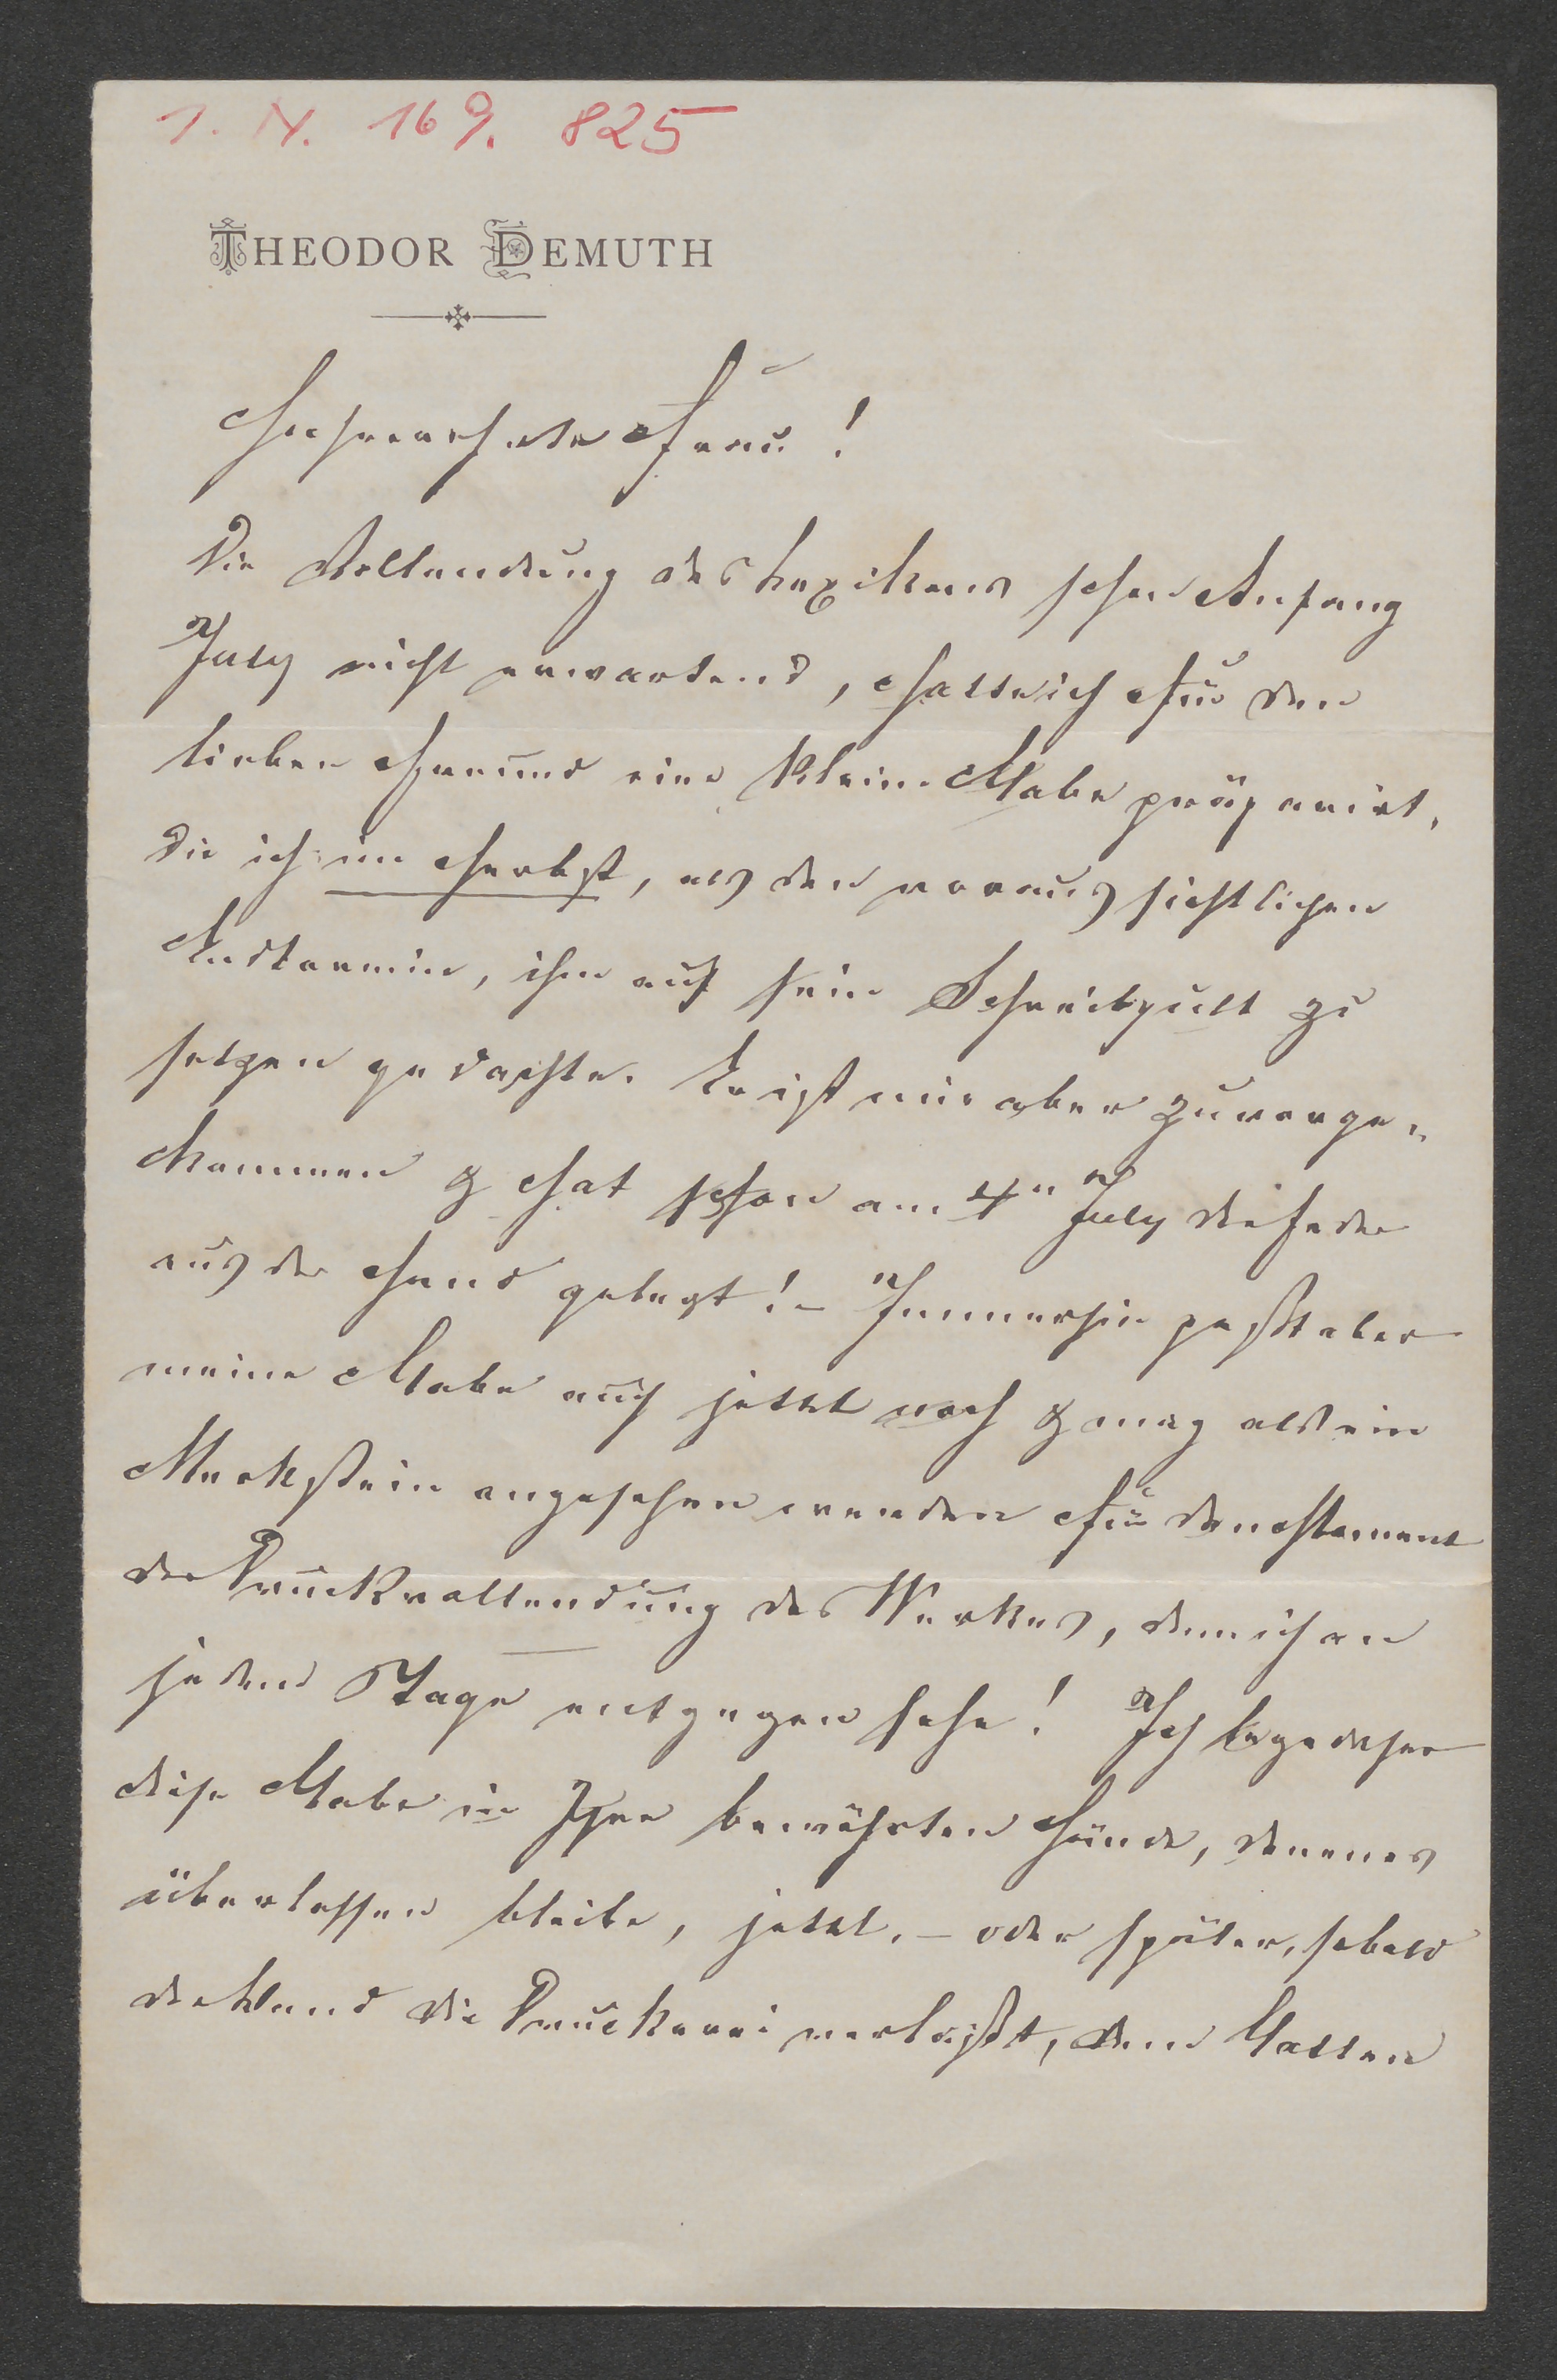 I. N. 169. 825
THEODOR DEMUTH
Hochverehrte Frau!
Die Vollendung des Lexikons schon Anfang
July nicht erwartend, hatte ich für den
lieben Freund eine kleine Gabe präparirt,
die ich im Herbst, als den voraussichtlichen
Endtermin, ihm auf sein Schreibpult zu
setzen gedachte. Er ist mir aber zuvorge-
kommen & hat schon am 4n July die Feder
aus der Hand gelegt! – Immerhin paßt aber
meine Gabe auch jetzt noch & mag als ein
Merkstein angesehen werden für den Moment
der Druckvollendung des Werkes, dem ich an
jedem Tage entgegen sehe! Ich lege daher
diese Gabe in Ihre bewährten Hände, denen es
überlassen bleibe, jetzt, – oder später, sobald
der Band die Druckerei verläßt, dem Gatten